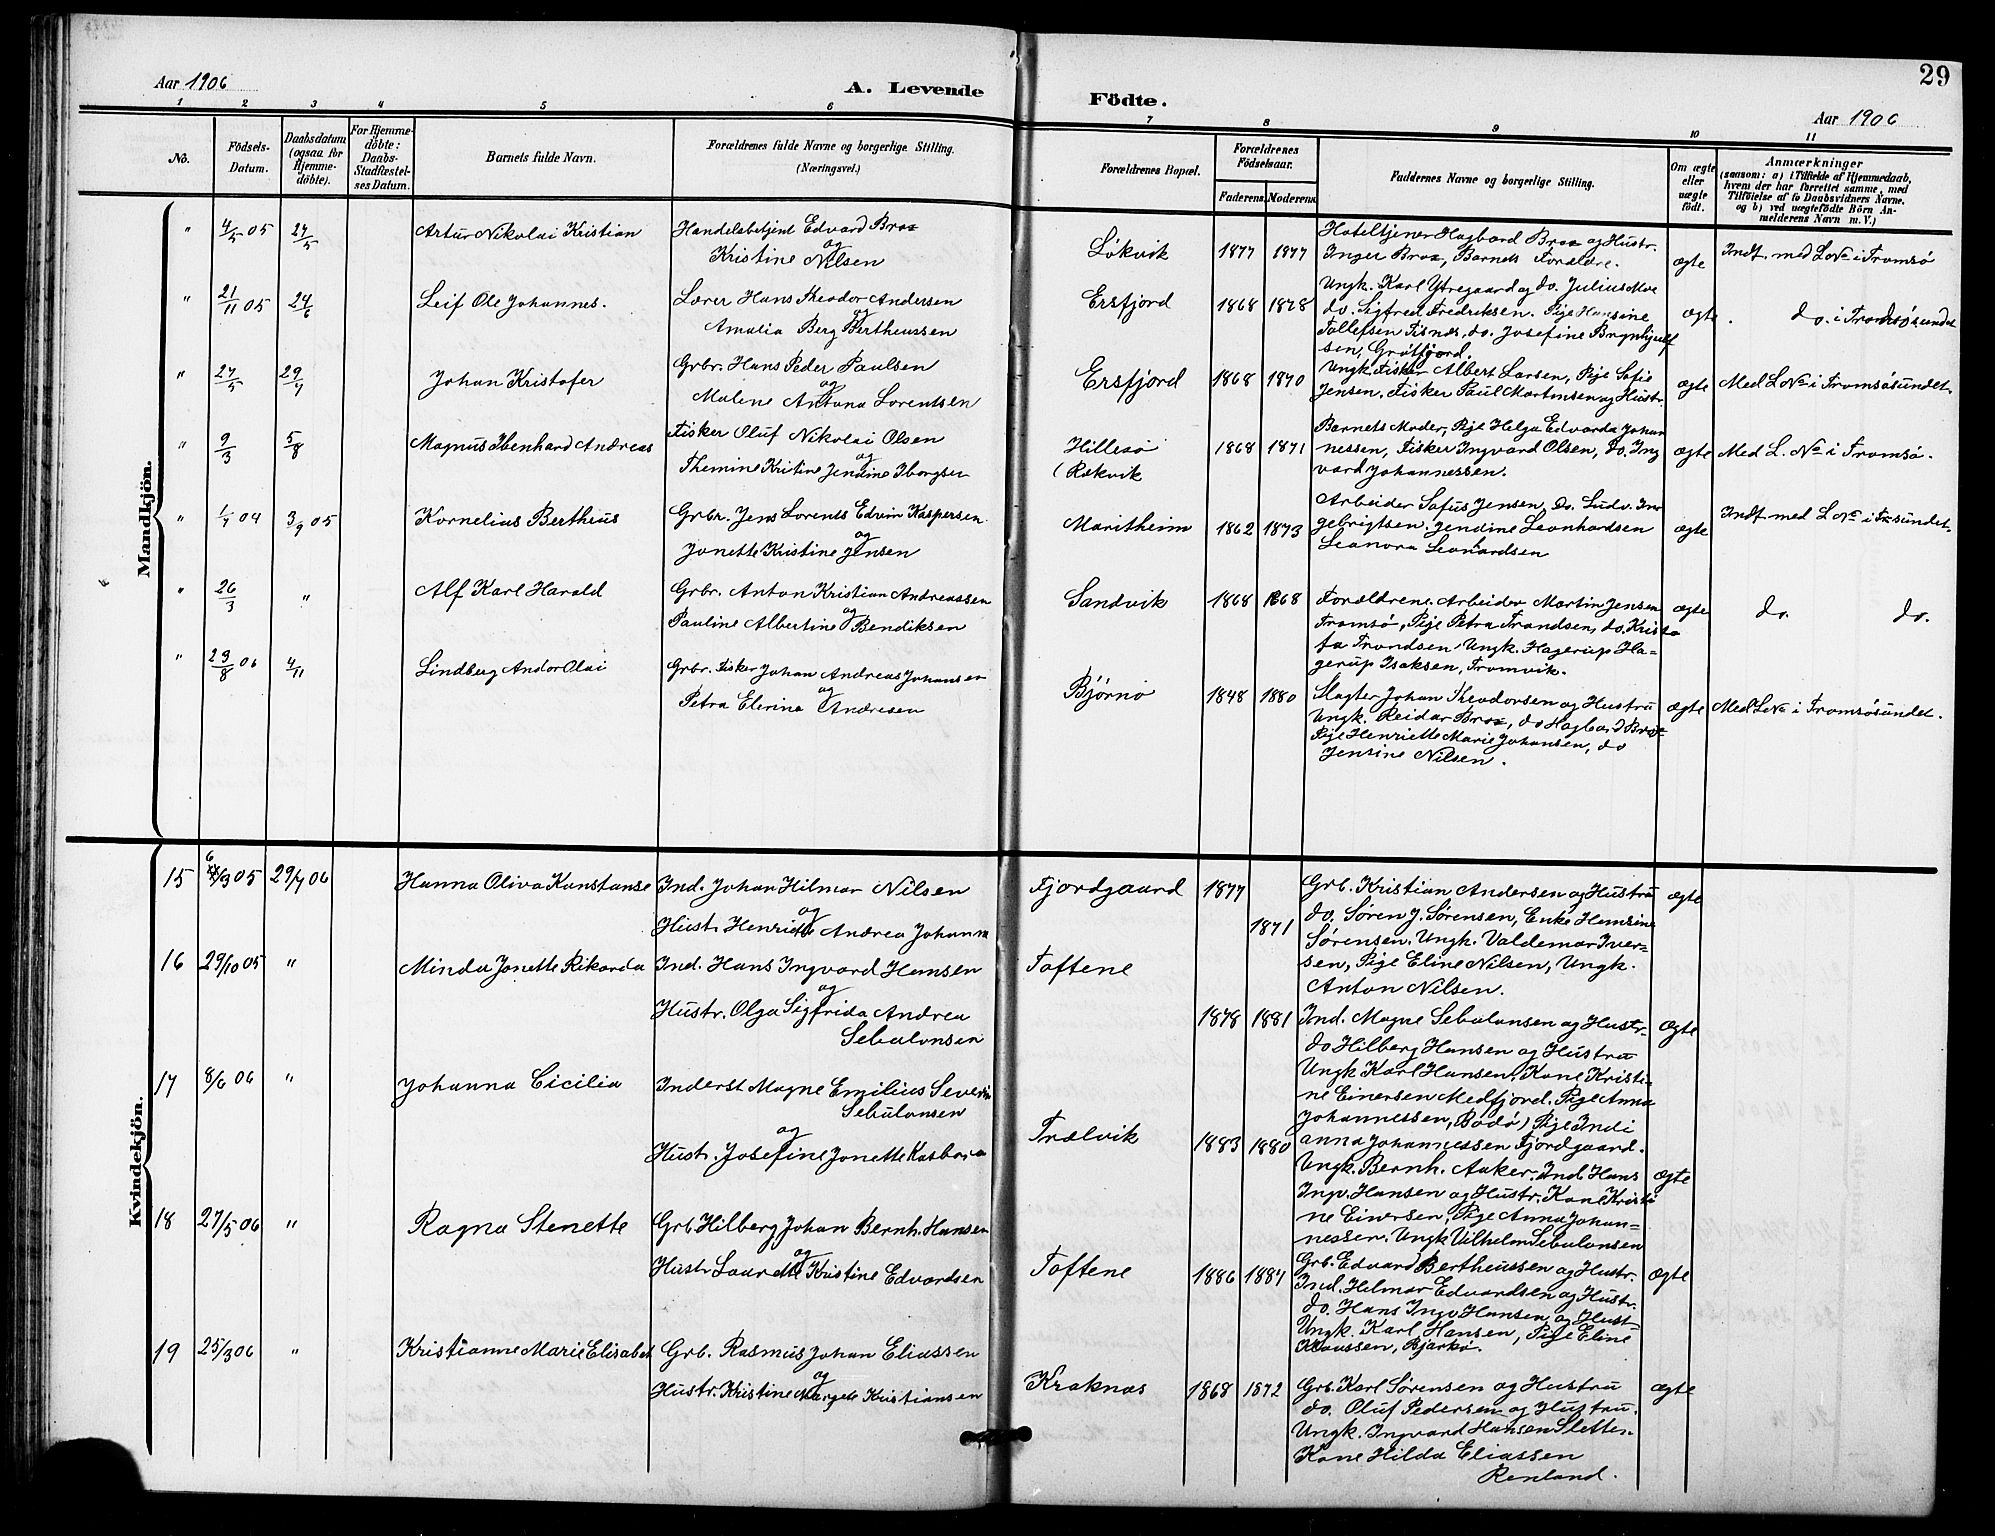 29
Aar 1906
A. Levende
Födte.
Aar 1906
1 2 3 4 5 6 7 8 9 10 11
No.
Födsels-
Datum.
Daabsdatum
(ogsaa for
Hjemme-
döbte).
For Hjemme-
döbte:
Daabs-
Stadfæstel-
ses Datum.
Barnets fulde Navn.
Forældrenes fulde Navne og borgerlige Stilling.
(Næringsvei.)
Forældrenes Bopæl.
Forældrenes
Födselsaar.
Faderens. Moderens.
Faddernes Navne og borgerlige Stilling.
Om ægte
eller
uægte
födt.
Anmærkninger
(saasom: a) i Tilfælde af Hjemmedaab,
hvem der har forrettet samme, med
Tilföielse af to Daabsvidners Navne,
og b) ved uægtefödte Börn An-
melderens Navn m. V.)
Mandkjön.
" 4/5 05 27/5 Artur Nikolai Kristian
Handelsbetjent Edvard Brox
og
Kristine Nilsen
Løkvik 1877 1877
Hoteltjener Hagbard Brox og Hustr.
Inger Brox, Barnets Forældre.
ægte
Indt. med L No i Tromsø
" 21/11 05 24/6 Leif Ole Johannes.
Lærer Hans Theodor Andersen
og
Amalia Berg Bertheussen
Ersfjord 1868 1878
Ungk. Karl Ytregaard og do. Julius Moe
do. Sigfred Fredriksen. Pige Hansine
Tollefsen Tisnes, do. Josefine Brynhjulf
sen, Grøtfjord.
ægte
do. i Tromsøsundet
" 27/5 29/7 Johan Kristofer
Grbr. Hans Peder Paulsen
og
Malene Antona Lorentsen
Ersfjord 1868 1870
Ungk. Fisker Albert Larsen, Pige Sofie
Jensen. Fisker Paul Martinsen og Hustr.
ægte
Med L No i Tromsøsundet.
" 9/3 5/8 Magnus Ibenhard Andreas
Fisker Oluf Nikolai Olsen
og
Themine Kristine Jendine Iborgsen
Hillesø
(Rekvik
1868 1871
Barnets Moder, Pige Helga Edvarda Johan
nessen, Fisker Ingvard Olsen, do. Ing
vard Johannessen.
ægte
Med L. No i Tromsø.
" 1/7 04 3/9 05 Kornelius Bertheus
Grbr. Jens Lorents Edvin Kaspersen
og
Jonette Kristine Jensen
Maritheim 1862 1873
Arbeider Sofus Jensen, do. Ludv. In
gebrigtsen. Jendine Leonhardsen
Leonora Leonardsen
ægte
Indt med L No i Tr.sundet.
" 26/3 " Alf Karl Harald
Grbr. Anton Kristian Andreassen
og
Pauline Albertine Bendiksen
Sandvik 1868 1868
Forældrene. Arbeider Martin Jensen
Tromsø, Pige Petra Trondsen, do. Kristo
fa Trondsen, Ungk. Hagerup Ha-
gerup Isaksen, Tromvik.
ægte
do. do.
" 23/8 06 4/11 Lindberg Andor Olai
Grbr. Fisker Johan Andreas Johansen
og
Petra Elerine Andresen
Bjørnø 1848 1880
Slagter Johan Theodorsen og Hustru
Ungk. Reidar Brox, do Hagbard Brox
Pige Henriette Marie Johansen, do
Jensine Nilsen.
ægte
Med L No i Tromsøsundet.
Kvindekjön.
15 6/3 05 29/7 06 Hanna Oliva Konstanse
Ind. Johan Hilmar Nilsen
og
Hustr. Henriette Andrea Johanna
Fjordgaard 1877 1871
Grb. Kristian Andersen og Hustru
do. Søren J. Sørensen, Enke Hansine
Sørensen. Ungk. Valdemar Iver-
sen, Pige Eline Nilsen, Ungk.
Anton Nilsen.
ægte
16 29/10 05 " Minda Jonette Rikarda
Ind. Hans Ingvard Hansen
og
Hustr. Olga Sigfrida Andrea
Sebulonsen
Toftene 1878 1881
Ind. Magne Sebulonsen og Hustr.
do Hilberg Hansen og Hustru
Ungk Karl Hansen, Kone Kristi-
ne Einersen Medfjord. Pige Anna
Johannessen, (Bodø) Pige Indi
anna Johannessen Fjordgaard.
ægte
17 8/6 06 " Johanna Cicilia
Inderst Magne Emilius Severin
Sebulonsen
og
Hustr. Josefine Jonette Kasbara
Trælvik 1883 1880
Ungk. Bernh. Aaker. Ind. Hans
Ingv. Hansen og Hustr. Kone Kristi
ne Einersen, Pige Anna Johan-
nessen. Ungk Vilhelm Sebulonsen
ægte
18 27/5 06 " Ragna Stenette
Grb. Hilberg Johan Bernh. Hansen
og
Hustr Laurette Kristine Edvardsen
Toftene 1886 1887
Grb. Edvard Bertheussen og Hustr.
Ind. Hilmar Edvardsen og Hustr.
do. Hans Ingv Hansen og Hust-
Ungk. Karl Hansen, Pige Eline
Klaussen, Bjarkø.
ægte
19 25/3 06 " Kristianne Marie Elisabet
Grb. Rasmus Johan Eliassen
og
Hustr. Kristine Margete Kristiansen
Kraknæs 1868 1872
Grb. Karl Sørensen og Hustru
do. Oluf Pedersen og Hustru.
Ungk. Ingvard Hansen Sletten.
Kone Hilda Eliassen
Renland.
ægte